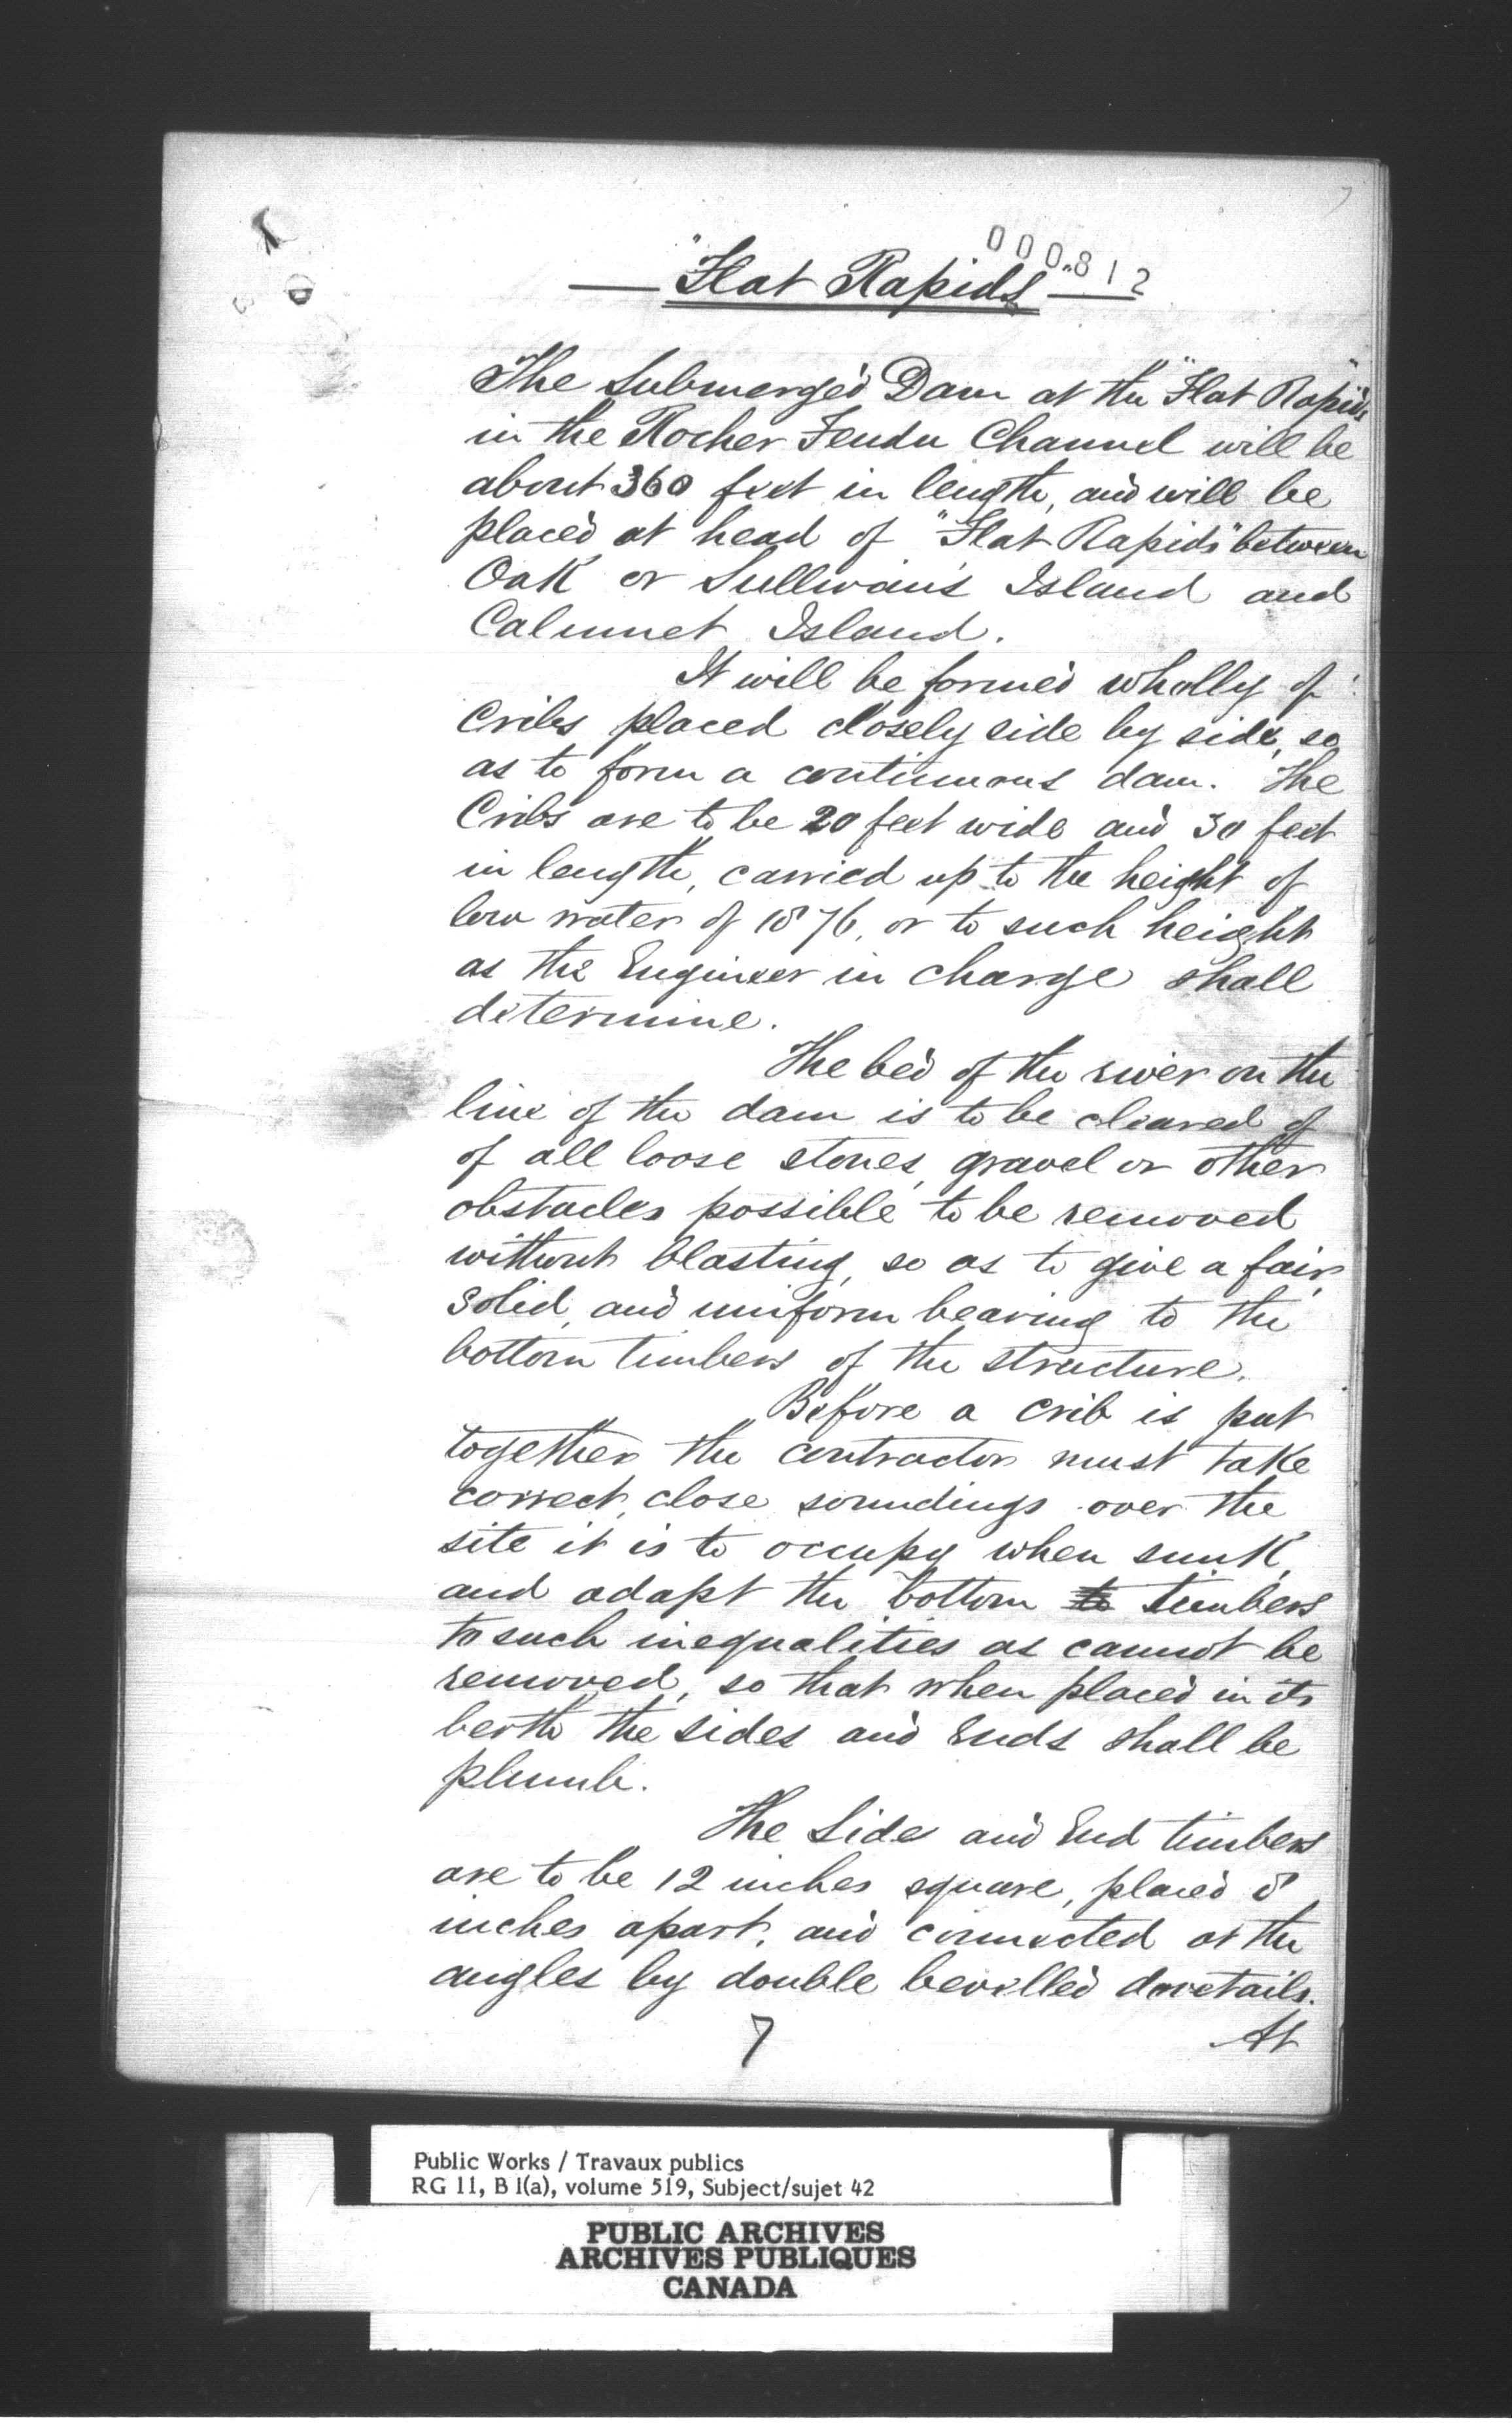 7
000812
"Flat Rapids"
The Submerged Dam at the "Flat Rapids"
in the Rocher Fendu Channel will be
about 360 feet in length, and will be
placed at head of "Flat Rapids" between
Oak or Sullivan's Island and
Calumet Island.
It will be formed wholly of
Cribs placed closely side by side, so
as to form a continuous dam. The
Cribs are to be 20 feet wide and 30 feet
in length, carried up to the height of
low water of 1876, or to such height
as the Engineer in charge shall
determine.
The bed of the river on the
line of the dam is to be cleared of
of all loose stones, gravel or other
obstacles possible to be removed
without blasting, so as to give a fair,
solid, and uniform bearing to the
bottom timbers of the structure.
Before a crib is put
together the contractor must take
correct, close soundings over the
site it is to occupy when sunk,
and adapt the bottom to timbers
to such inequalities as cannot be
removed, so that when placed in its
berth the sides and ends shall be
plumb.
The Side and End timbers
are to be 12 inches square, placed 8
inches apart, and connected at the
angles by double bevelled dovetails.
At
7
Public Works / Travaux publics
RG 11, B 1(a), volume 519, Subject/sujet 42
PUBLIC ARCHIVES
ARCHIVES PUBLIQUES
CANADA